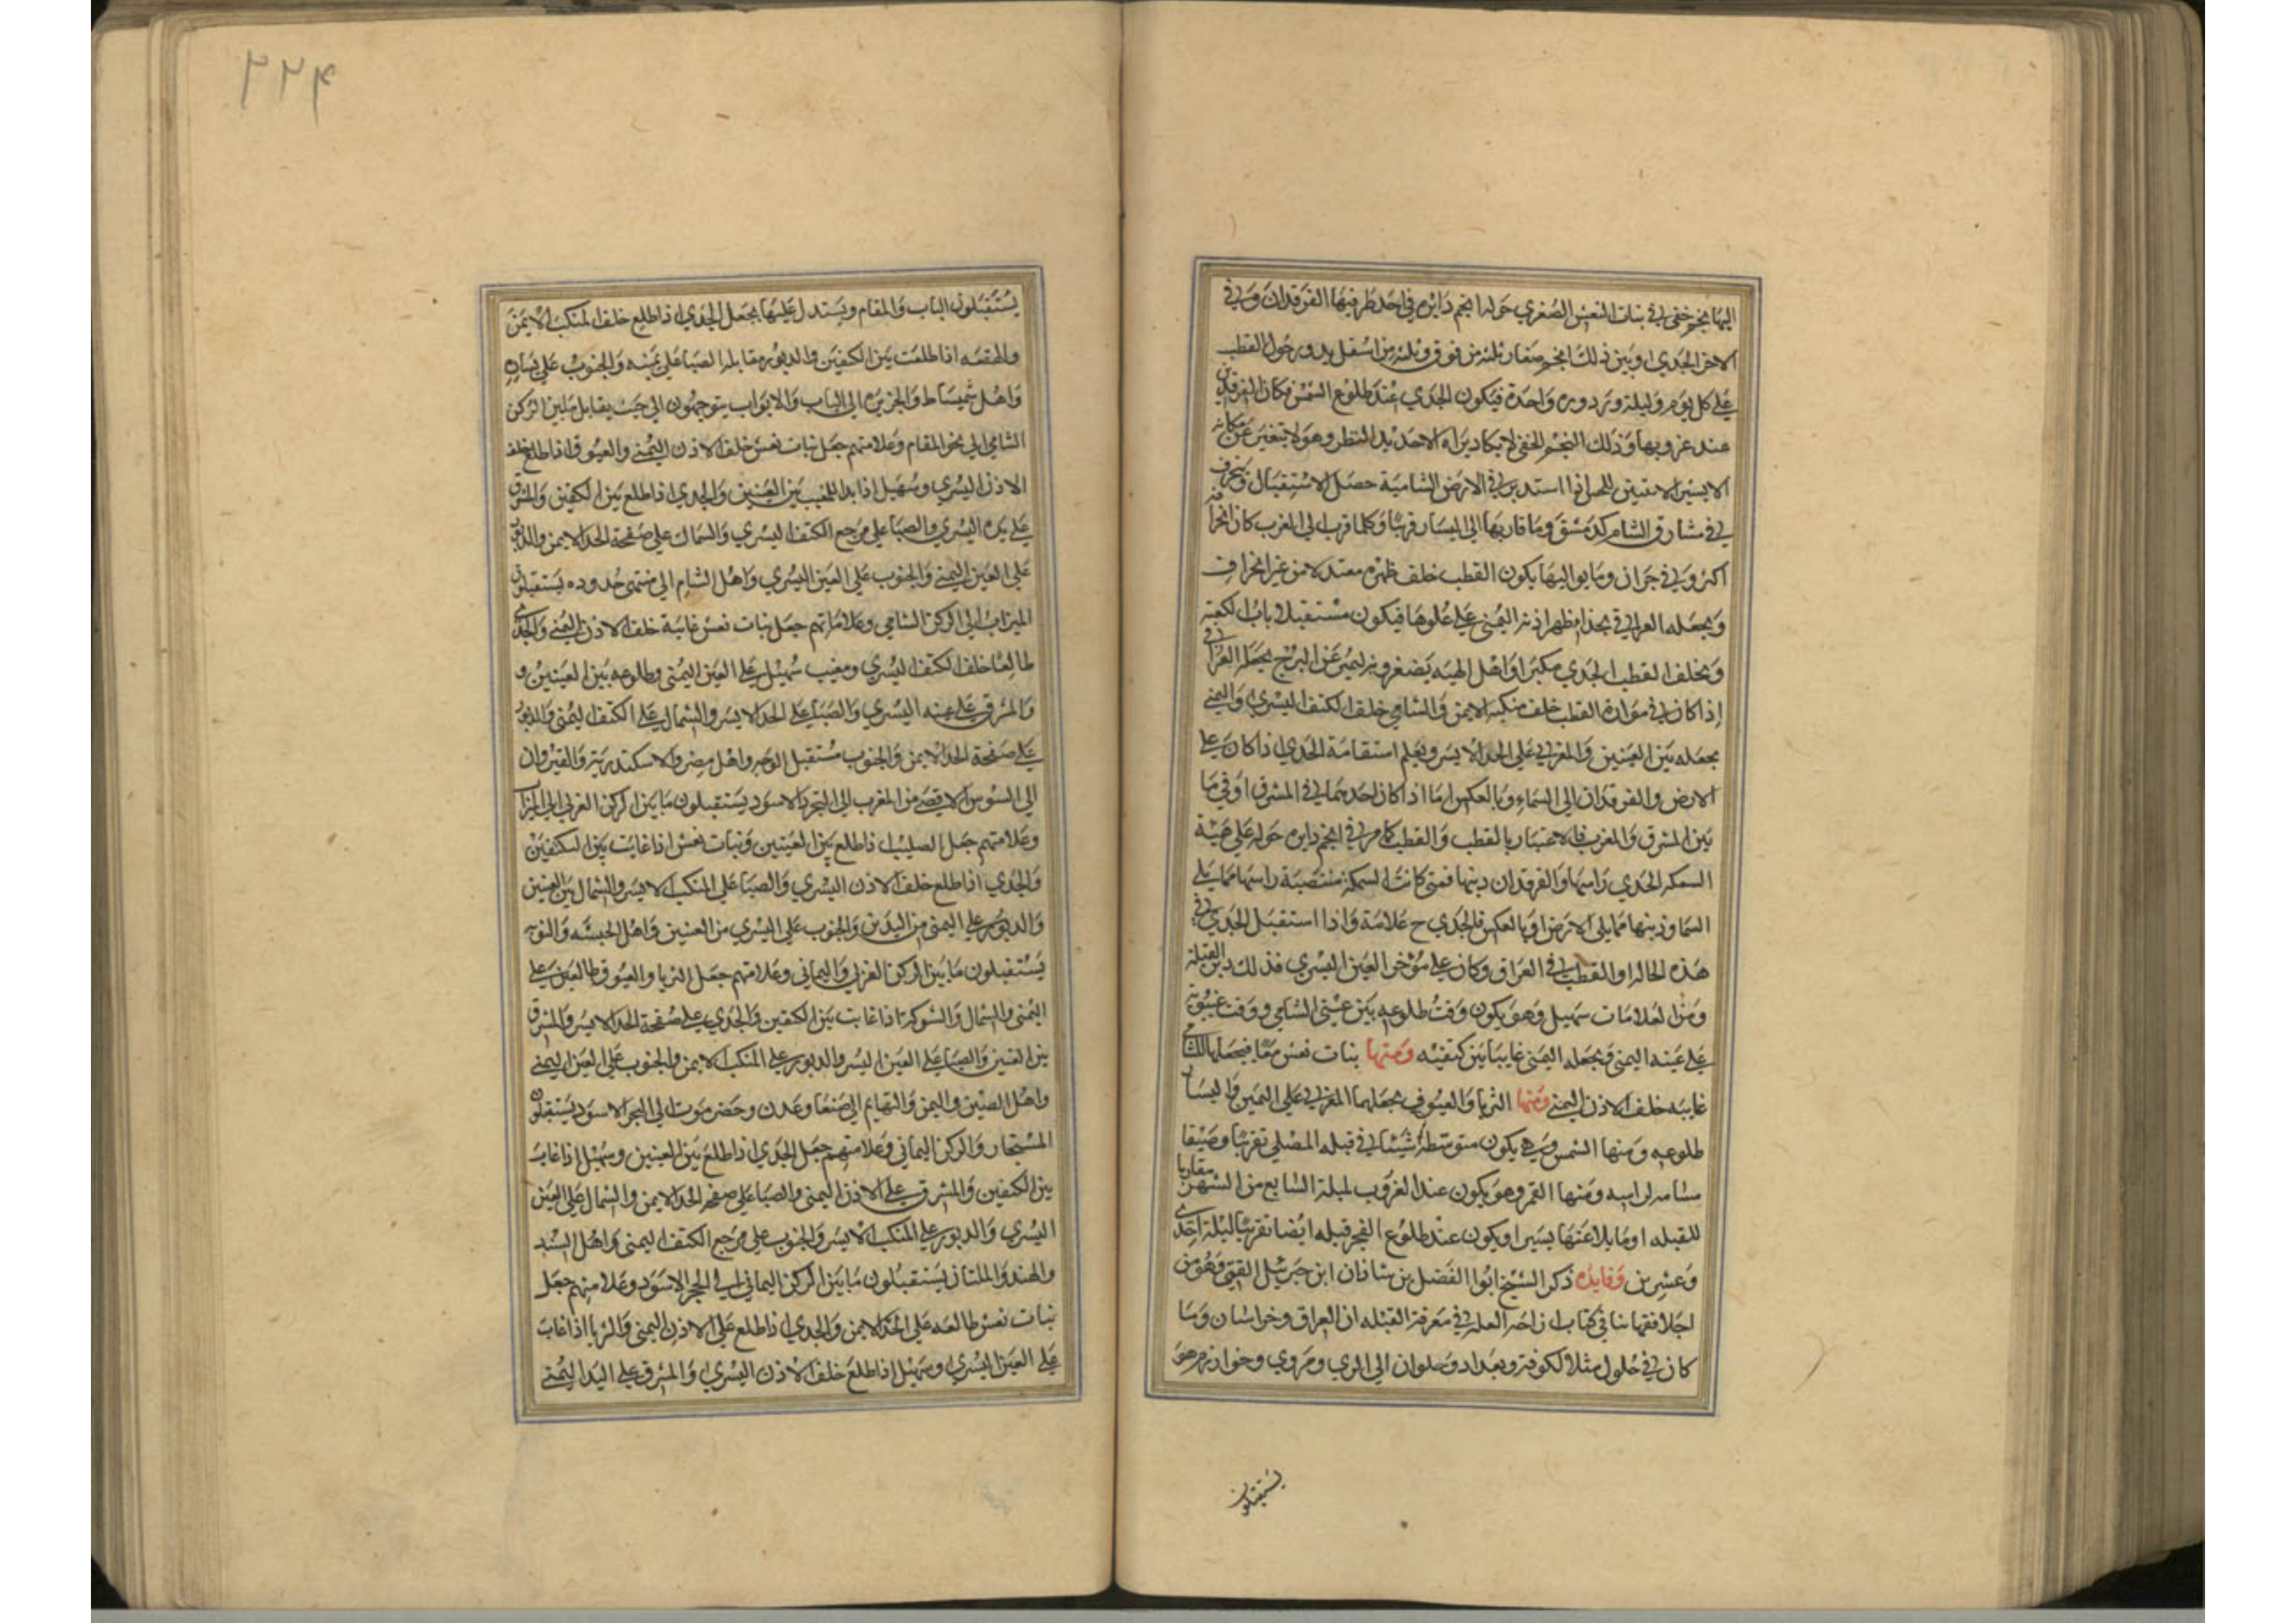 اليها نجم خفي في بنات النعش الصغري حوله انجم دايره في احد طرفيها الفرقدان وفي
الاخر الجدي وبين ذلك انجم صغار ثلثة من فوق وثلثة من اسفل يدور حول القطب
على كل يوم وليلة دوره واحدة فيكون الجدي عند طلوع الشمس مكان الفرقدين
عند غروبها وذلك النجم الخفي لا يكاد يراه الا حديد النظر وهو لا يتغير عن مكانه
الا يسيرا لا يتبين للحس اذا استدبر في الارض الشامية حصل الاستقبال وينحرف
في مشارق الشام كدمشق وما قاربها الى اليسار قريبا وكلما قرب الى المغرب كان انحرافه
اكثر وفي حران وما يواليها يكون القطب خلف ظهره معتدلا من غير انحراف
ويجعله العراقي بحذا ظهر اذنه اليمنى على علوها فيكون مستقبلا باب الكعبة
ويخلف القطب الجدي مكبرا واهل الهيه يصغرونه ليميز عن البرج يجعله العراقي
اذا كان في موازاة القطب خلف منكبه الايمن والشامي خلف الكتف اليسري واليمني
يجعله بين العينين والمغربي على الخد الايسر ويعلم استقامة الجدي اذا كان على
الارض والفرقدان الى السماء وبالعكس اما اذا كان احدهما في المشرق او في ما
بين المشرق والمغرب فالاعتبار بالقطب والقطب كامر في انجم دايره حوله على هيئة
السمكه الجدي راسها والفرقدان ذنبها فمتى كانت السمكة منتصبة راسها مما يلي
السما وذنبها مما يلي الارض او بالعكس فالجدي ح علامة واذا استقبل الجدي في
هذه الحاله او القطب في العراق وكان على مؤخر العين اليسري فذلك دبر القبلة
ومن العلامات سهيل وهو يكون وقت طلوعه بين عيني الشامي ووقت غيبوبته
على عينه اليمنى ويجعله اليمني غايبا بين كتفيه ومنها بنات نعش معا فيجعلها الشامي
غايبه خلف الاذن اليمنى ومنها الثريا والعيوق يجعلهما المغربي على اليمين واليسار
طلوعه ومنها الشمس وهي يكون متوسطة شتا في قبله المصلي تقريبا وصيفا
مسامه لراسه ومنها القمر وهو يكون عند الغروب لليلة السابع من الشهر مقاربا
للقبله او مايلا عنها يسيرا ويكون عند طلوع الفجر قبله ايضا تقريبا ليلة احدى
وعشرين وفايده ذكر الشيخ ابوا الفضل بن شاذان ابن جبرئيل القمي وهو من
اجلا فقهائنا في كتاب ازاحه العله في معرفة القبله ان العراق وخراسان وما
كان في حلول مثل الكوفة وبغداد وحلوان الى الري ومروي وخوارزم هو
يستقبلون
٢٢۴
يستقبلون الباب والمقام ويستدل عليها بجعل الجدي اذا طلع خلف المنكب الايمن
والهقعه اذا طلعت بين الكتفين والدبور مقابله الصبا على يمينه والجنوب على يساره
واهل شميساط والجزيره الى الباب والابواب يتوجهون الى حيث يقابل مابين الركن
الشامي الى نحو المقام وعلامتهم جعل بنات نعش خلف الاذن اليمنى والعيوق اذا طلع خلف
الاذن اليسري وسهيل اذا بدا للمغيب بين العينين والجدي اذا طلع بين الكتفين والمشرق
على يده اليسري والصبا على مرجع الكتف اليسري والشمال على صفحة الخد الايمن والدبور
على العين اليمنى والجنوب على العين اليسري واهل الشام الى منتهى حدوده يستقبلون
الميزاب الى الركن الشامي وعلاماتهم جعل بنات نعش غايبة خلف الاذن اليمنى والجدي
طالعا خلف الكتف اليسري ومغيب سهيل على العين اليمنى وطلوعه بين العينين و
والمشرق على عينه اليسري والصبا على الخد الايسر والشمال على الكتف اليمنى والدبور
على صفحة الخد الايمن والجنوب مستقبل الوجه واهل مصر والاسكندرية والقيروان
الى السوس الاقصى من المغرب الى البحر الاسود يستقبلون ما بين الركن الغربي الى الميزاب
وعلامتهم جعل الصليب اذا طلع بين العينين وبنات نعش اذا غابت بين الكتفين
والجدي اذا طلع خلف الاذن اليسري والصبا على المنكب الايسر والشمال بين العينين
والدبور على اليمنى من اليدين والجنوب على اليسري من العينين واهل الحبشه والنوبه
يستقبلون ما بين الركن الغربي واليماني وعلامتهم جعل الثريا والعيوق طالعين على
اليمنى والشمال والشوكة اذا غابت بين الكتفين والجدي على صفحة الخد الايسر والمشرق
بين العينين والصبا على العين اليسر والدبور على المنكب الايمن والجنوب على العين اليمنى
واهل الصين واليمن والتهايم الى صنعا وعدن وحضر موت الى البحر الاسود يستقبلون
المستجار والركن اليماني وعلامتهم جعل الجدي اذا طلع بين العينين وسهيل اذا غاب
بين الكتفين والمشرق على الاذن اليمنى والصبا على صفحه الخد الايمن والشمال على العين
اليسري والدبور على المنكب الايسر والجنوب على مرجع الكتف اليمنى واهل السند
والهند والملتان يستقبلون ما بين الركن اليماني الى الحجر الاسود وعلامتهم جعل
بنات نعش طالعه على الخد الايمن والجدي اذا طلع على الاذن اليمنى والثريا اذا غاب
على العين اليسري وسهيل اذا طلع خلف الاذن اليسري والمشرق على اليد اليمنى